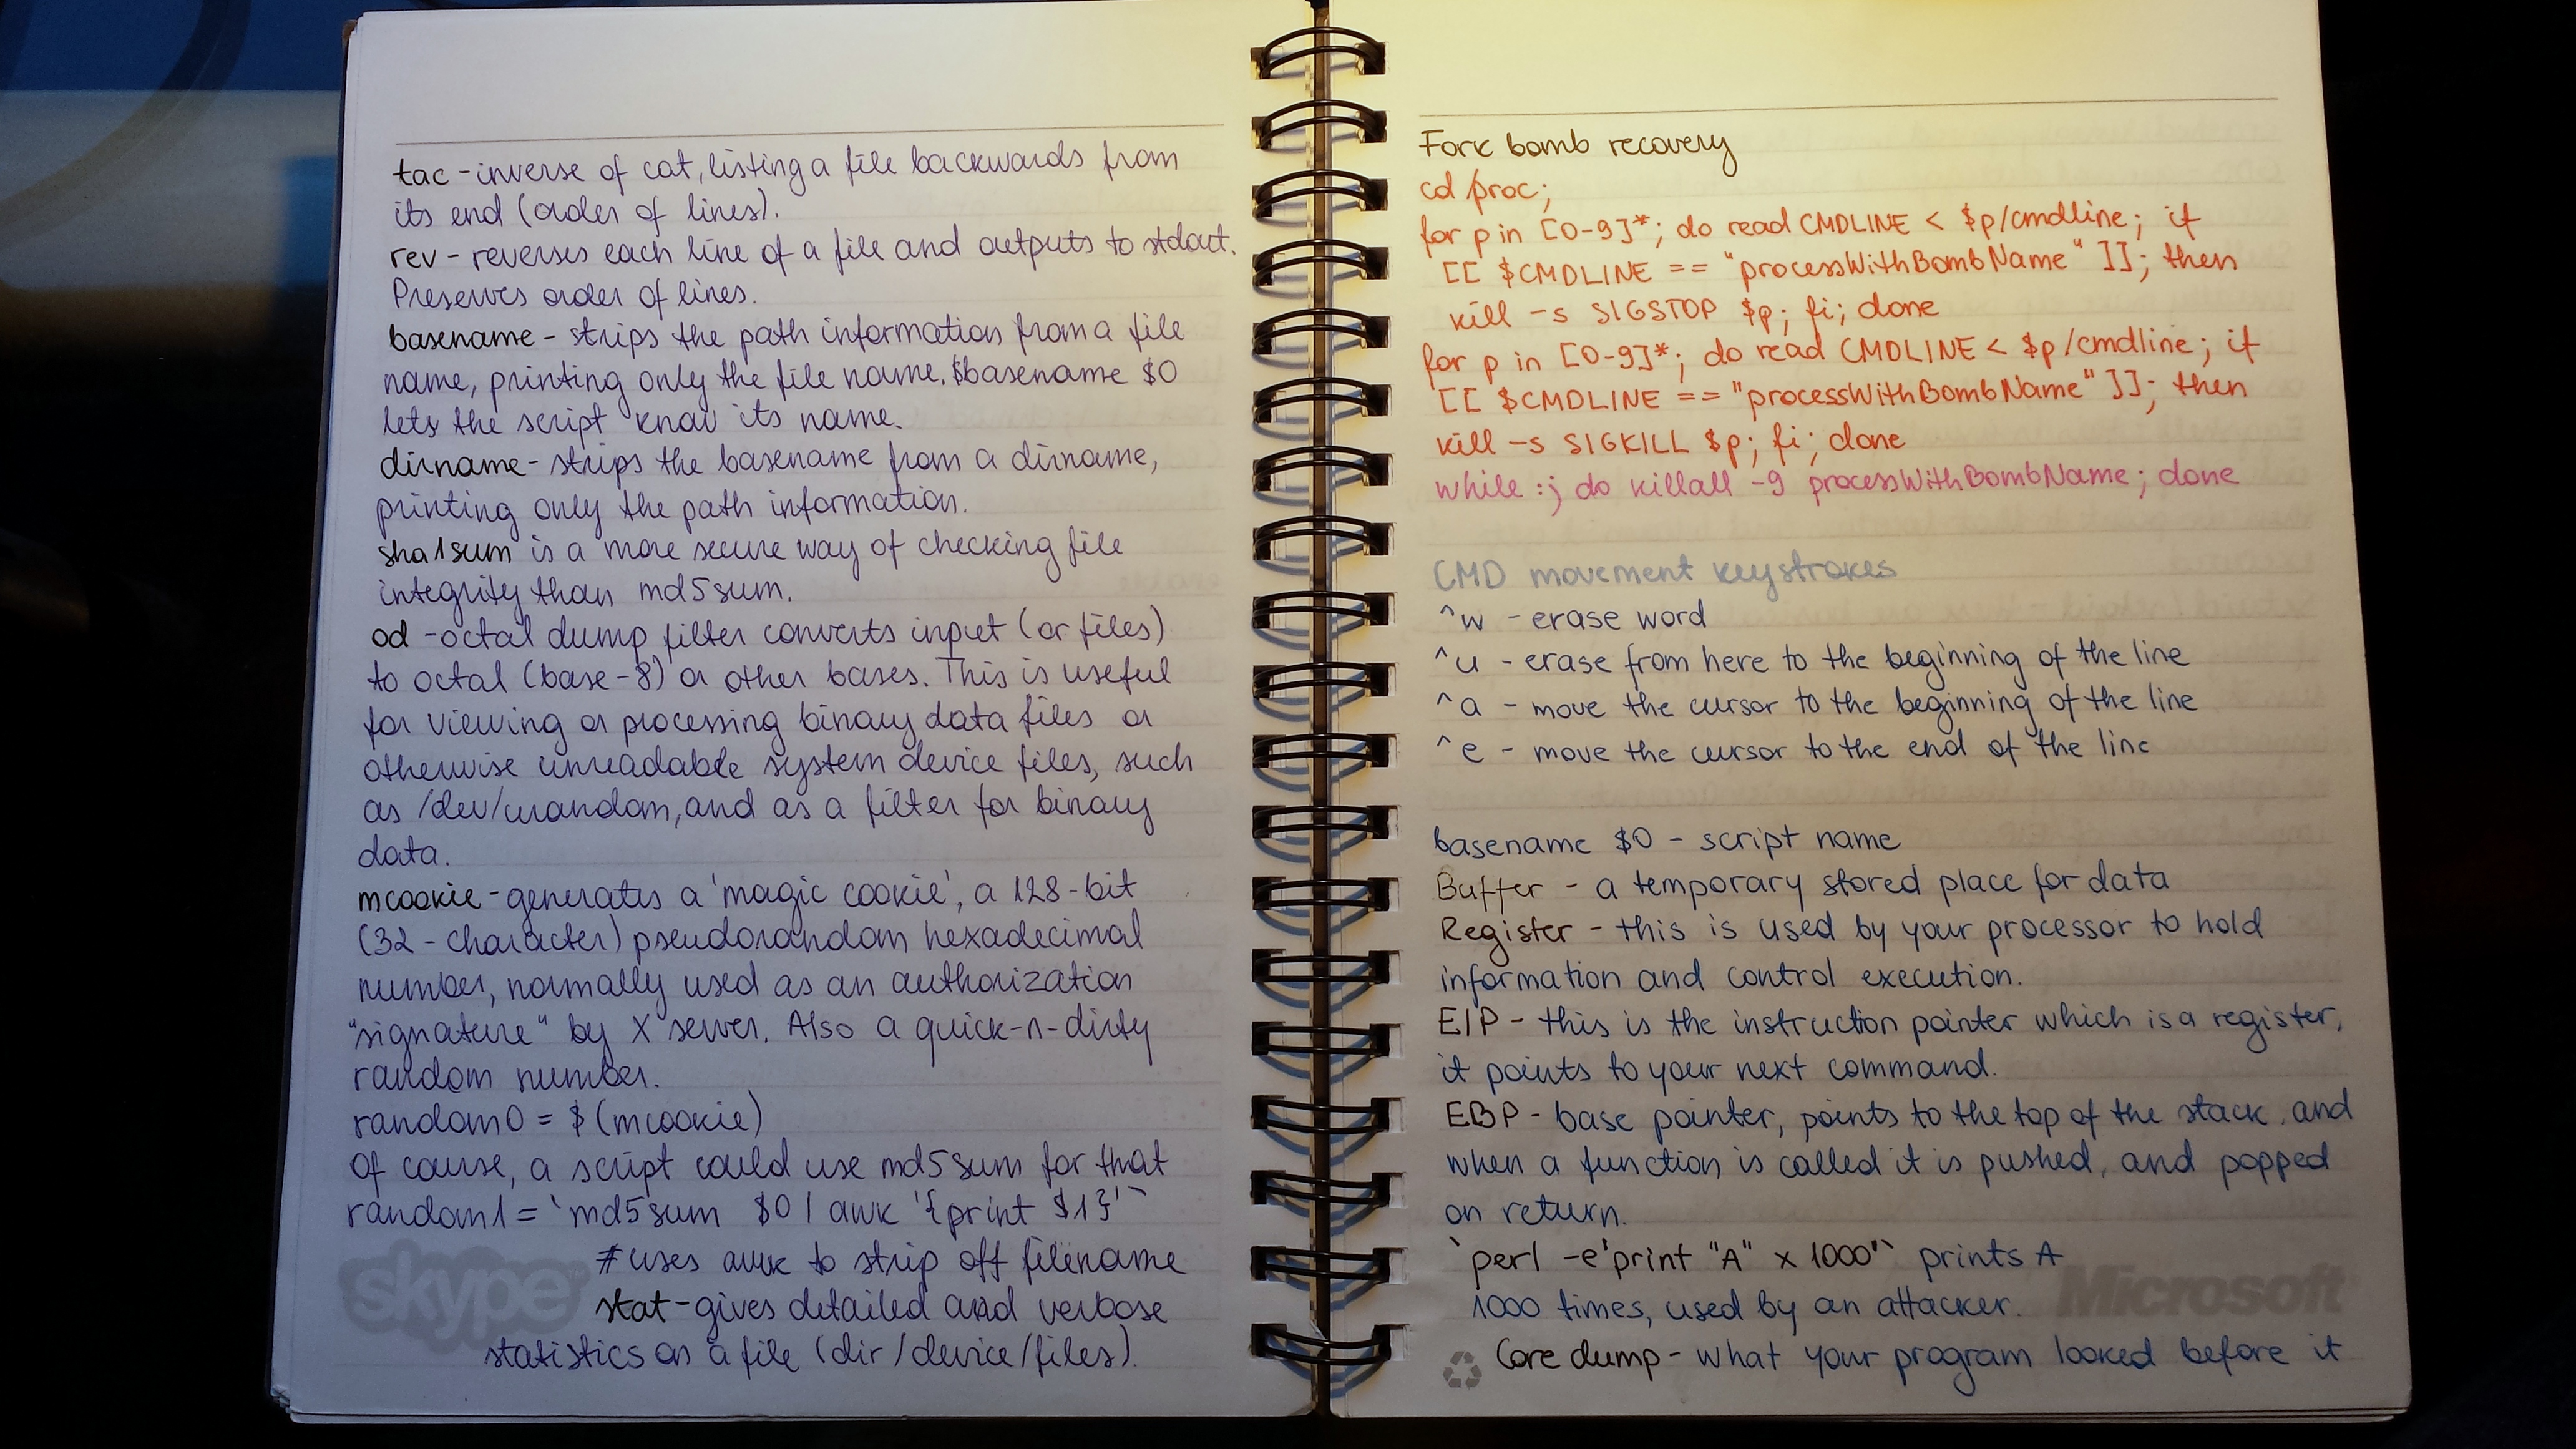 tac - inverse of cat, listing a file backwards from
its end (order of lines).
rev - reverses each line of a file and outputs to stdout.
Preserves order of lines.
basename - strips the path information from a file
name, printing only the file name. $basename $0
lets the script know its name.
dirname - strips the basename from a dirname,
printing only the path information.
sha1sum is a more secure way of checking file
integrity than md5sum.
od - octal dump filter converts input (or files)
to octal (base-8) or other bases. This is useful
for viewing or processing binary data files or
otherwise unreadable system device files, such
as /dev/urandom, and as a filter for binary
data.
mcookie - generates a 'magic cookie', a 128-bit
(32-character) pseudorandom hexadecimal
number, normally used as an authorization
"signature" by X server. Also a quick-n-dirty
random number.
random0 = $(mcookie)
of course, a script could use md5sum for that
random1 = `md5sum $0 | awk '{print $1}'`
#uses awk to strip off filename
stat - gives detailed and verbose
statistics on a file (dir/device/files).
skype
Fork bomb recovery
cd /proc;
for p in [0-9]*; do read CMDLINE < $p/cmdline; if
[[ $CMDLINE == "processWithBombName" ]]; then
kill -s SIGSTOP $p; fi; done
for p in [0-9]*; do read CMDLINE < $p/cmdline; if
[[ $CMDLINE == "processWithBombName" ]]; then
kill -s SIGKILL $p; fi; done
while :; do killall -9 processWithBombName; done
CMD movement keystrokes
^w - erase word
^u - erase from here to the beginning of the line
^a - move the cursor to the beginning of the line
^e - move the cursor to the end of the line
basename $0 - script name
Buffer - a temporary stored place for data
Register - this is used by your processor to hold
information and control execution.
EIP - this is the instruction pointer which is a register,
it points to your next command.
EBP - base pointer, points to the top of the stack, and
when a function is called it is pushed, and popped
on return.
`perl -e'print "A" x 1000'` prints A
1000 times, used by an attacker.
Microsoft
Core dump - what your program looked before it